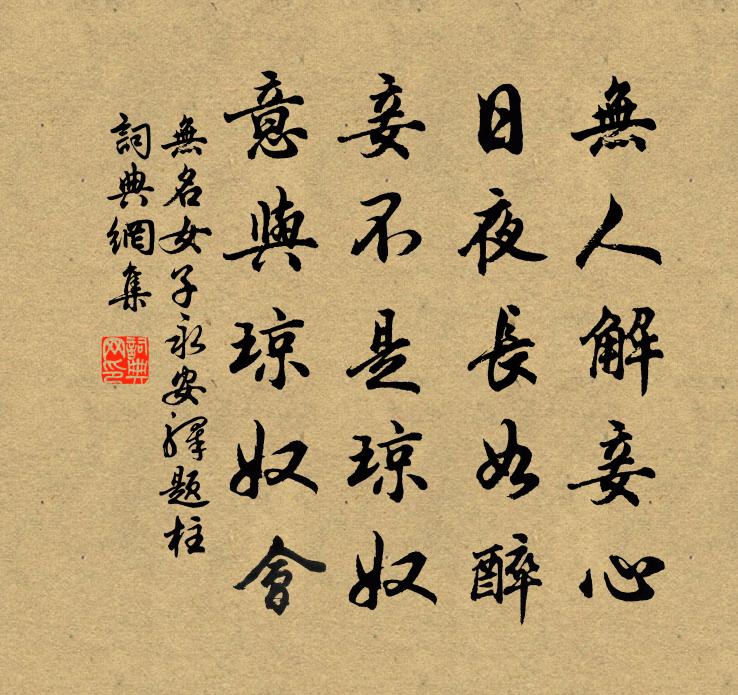 無人解妾心
日夜長如醉
妾不是琼奴
意與琼奴會
無名女子永安驛題柱
詞典網集
詞典网印